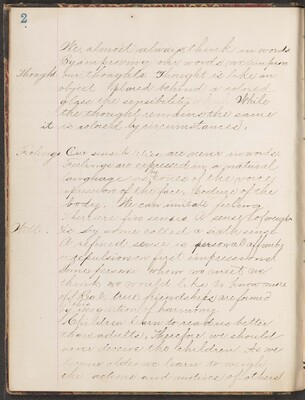 2
We almost always think in words
By improving our words we improve
Thought. our thoughts. Thought is like an
object placed behind a colored
glass the sensibility. While
the thought remains the same
it is colored by circumstances.
Feelings Our sensibilities are never in words
Feelings are expressed in a natural
language as tones of the voice,
expression of the face, bodies of the
body. We can imitate feeling
There are five senses A sense of weight
Will. is by some called a sixth sense
A refined sense is personal affinity
or repulsion on first impressions
Some person whom we meet we
think we would like to know more
of. So true friendships are formed
This intuition of harmony.
Children learn to read us better
than adults. Therefore we should
never deceive the children. As we
grow older we learn to weigh
the actions and motives of others